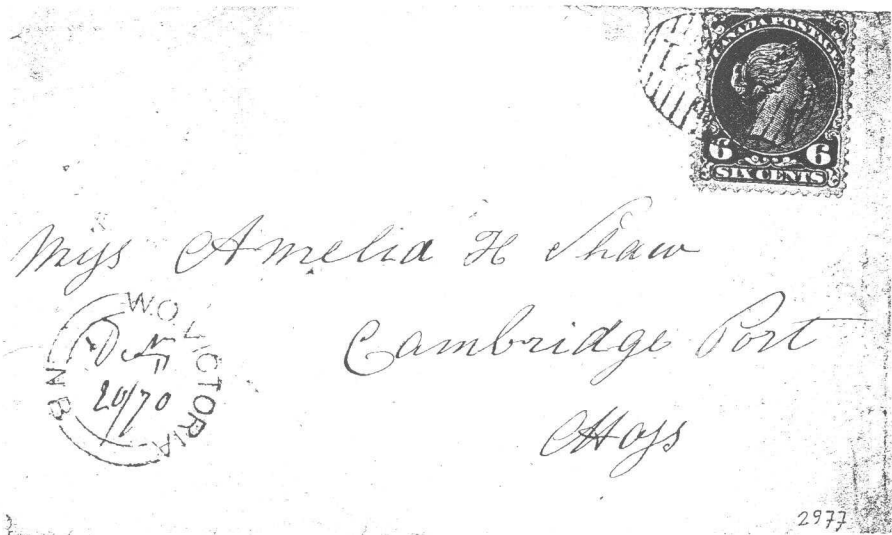 CANADA POSTAGE
6 6
SIX CENTS
12
Miss Amelia H Shaw
Cambridge Port
Mass
W.O. VICTORIA
20/70
N B
2977